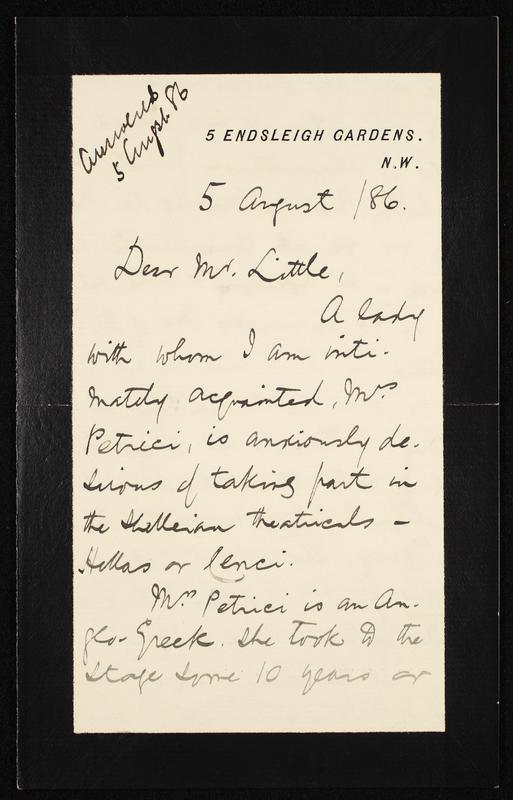 Answered
5 August 86
5 ENDSLEIGH GARDENS.
N.W.
5 August /86.
Dear Mr. Little,
A lady
with whom I am inti-
mately acquainted, Mrs
Petrici, is anxiously de-
sirous of taking part in
the Shelleian theatricals –
Hellas or Cenci.
Mrs Petrici is an An-
glo-Greek. She took to the
stage some 10 years or